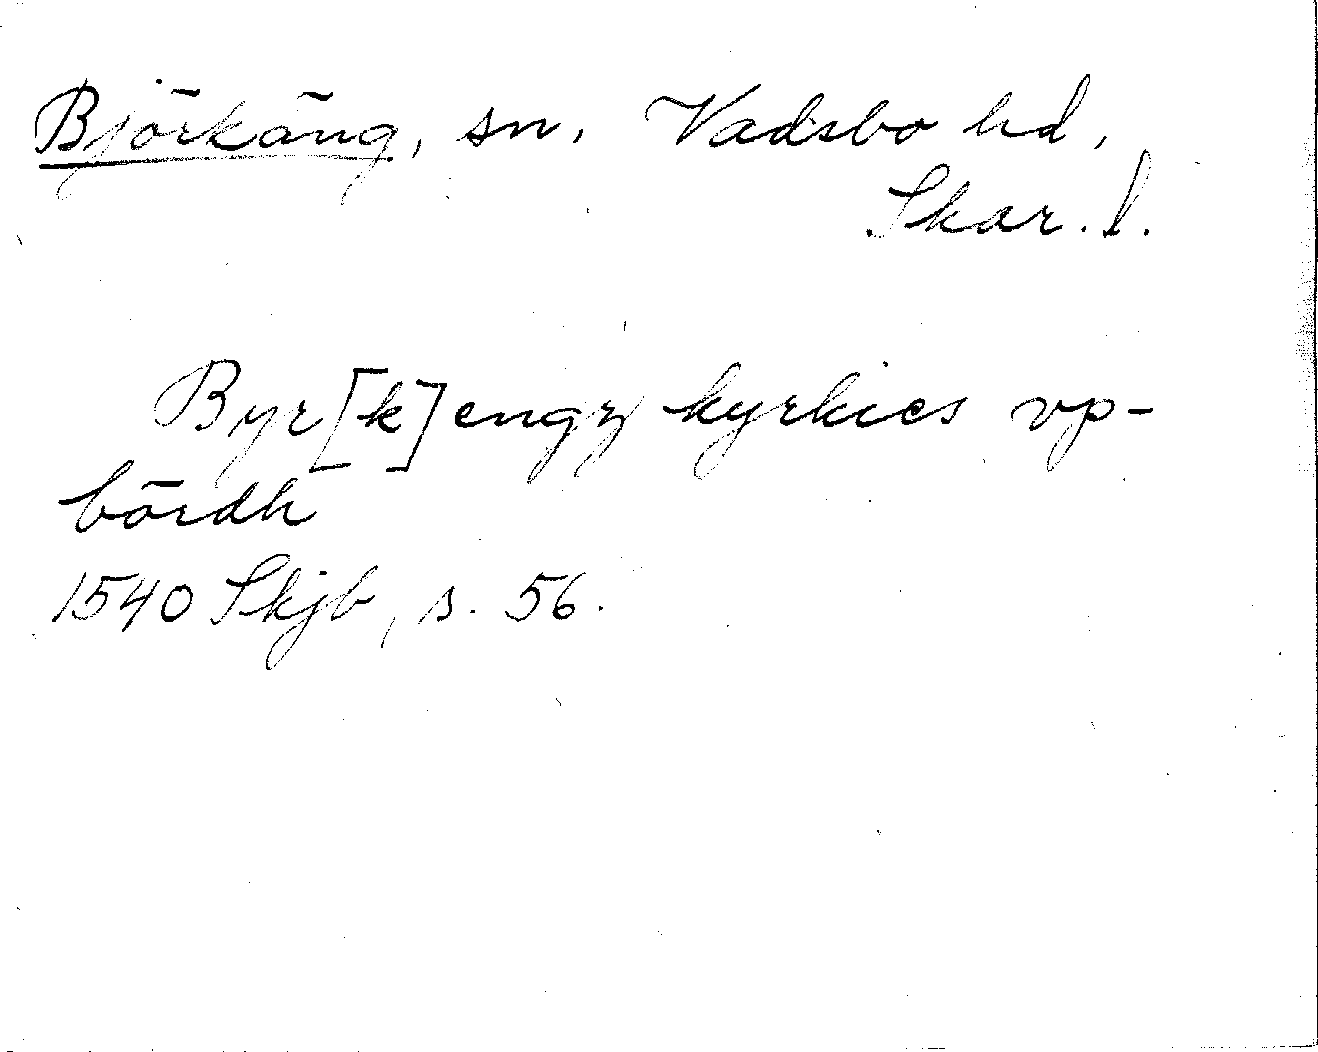 Björkäng, sn. Vadsbo hd,
Skar. l.
Byr[k]engz kyrkies vp-
bördh
1540 Skjb, s. 56.